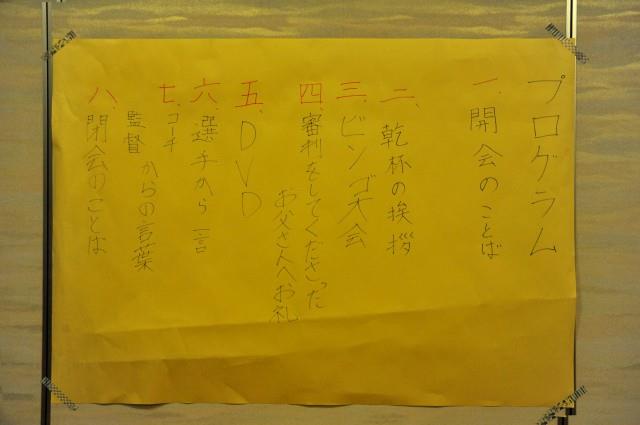 プログラム
一、開会のことば
二、乾杯の挨拶
三、ビンゴ大会
四、審判をしてくださった
お父さんへお礼
五、DVD
六、選手から一言
七、コーチ
監督
からの言葉
八、閉会のことば